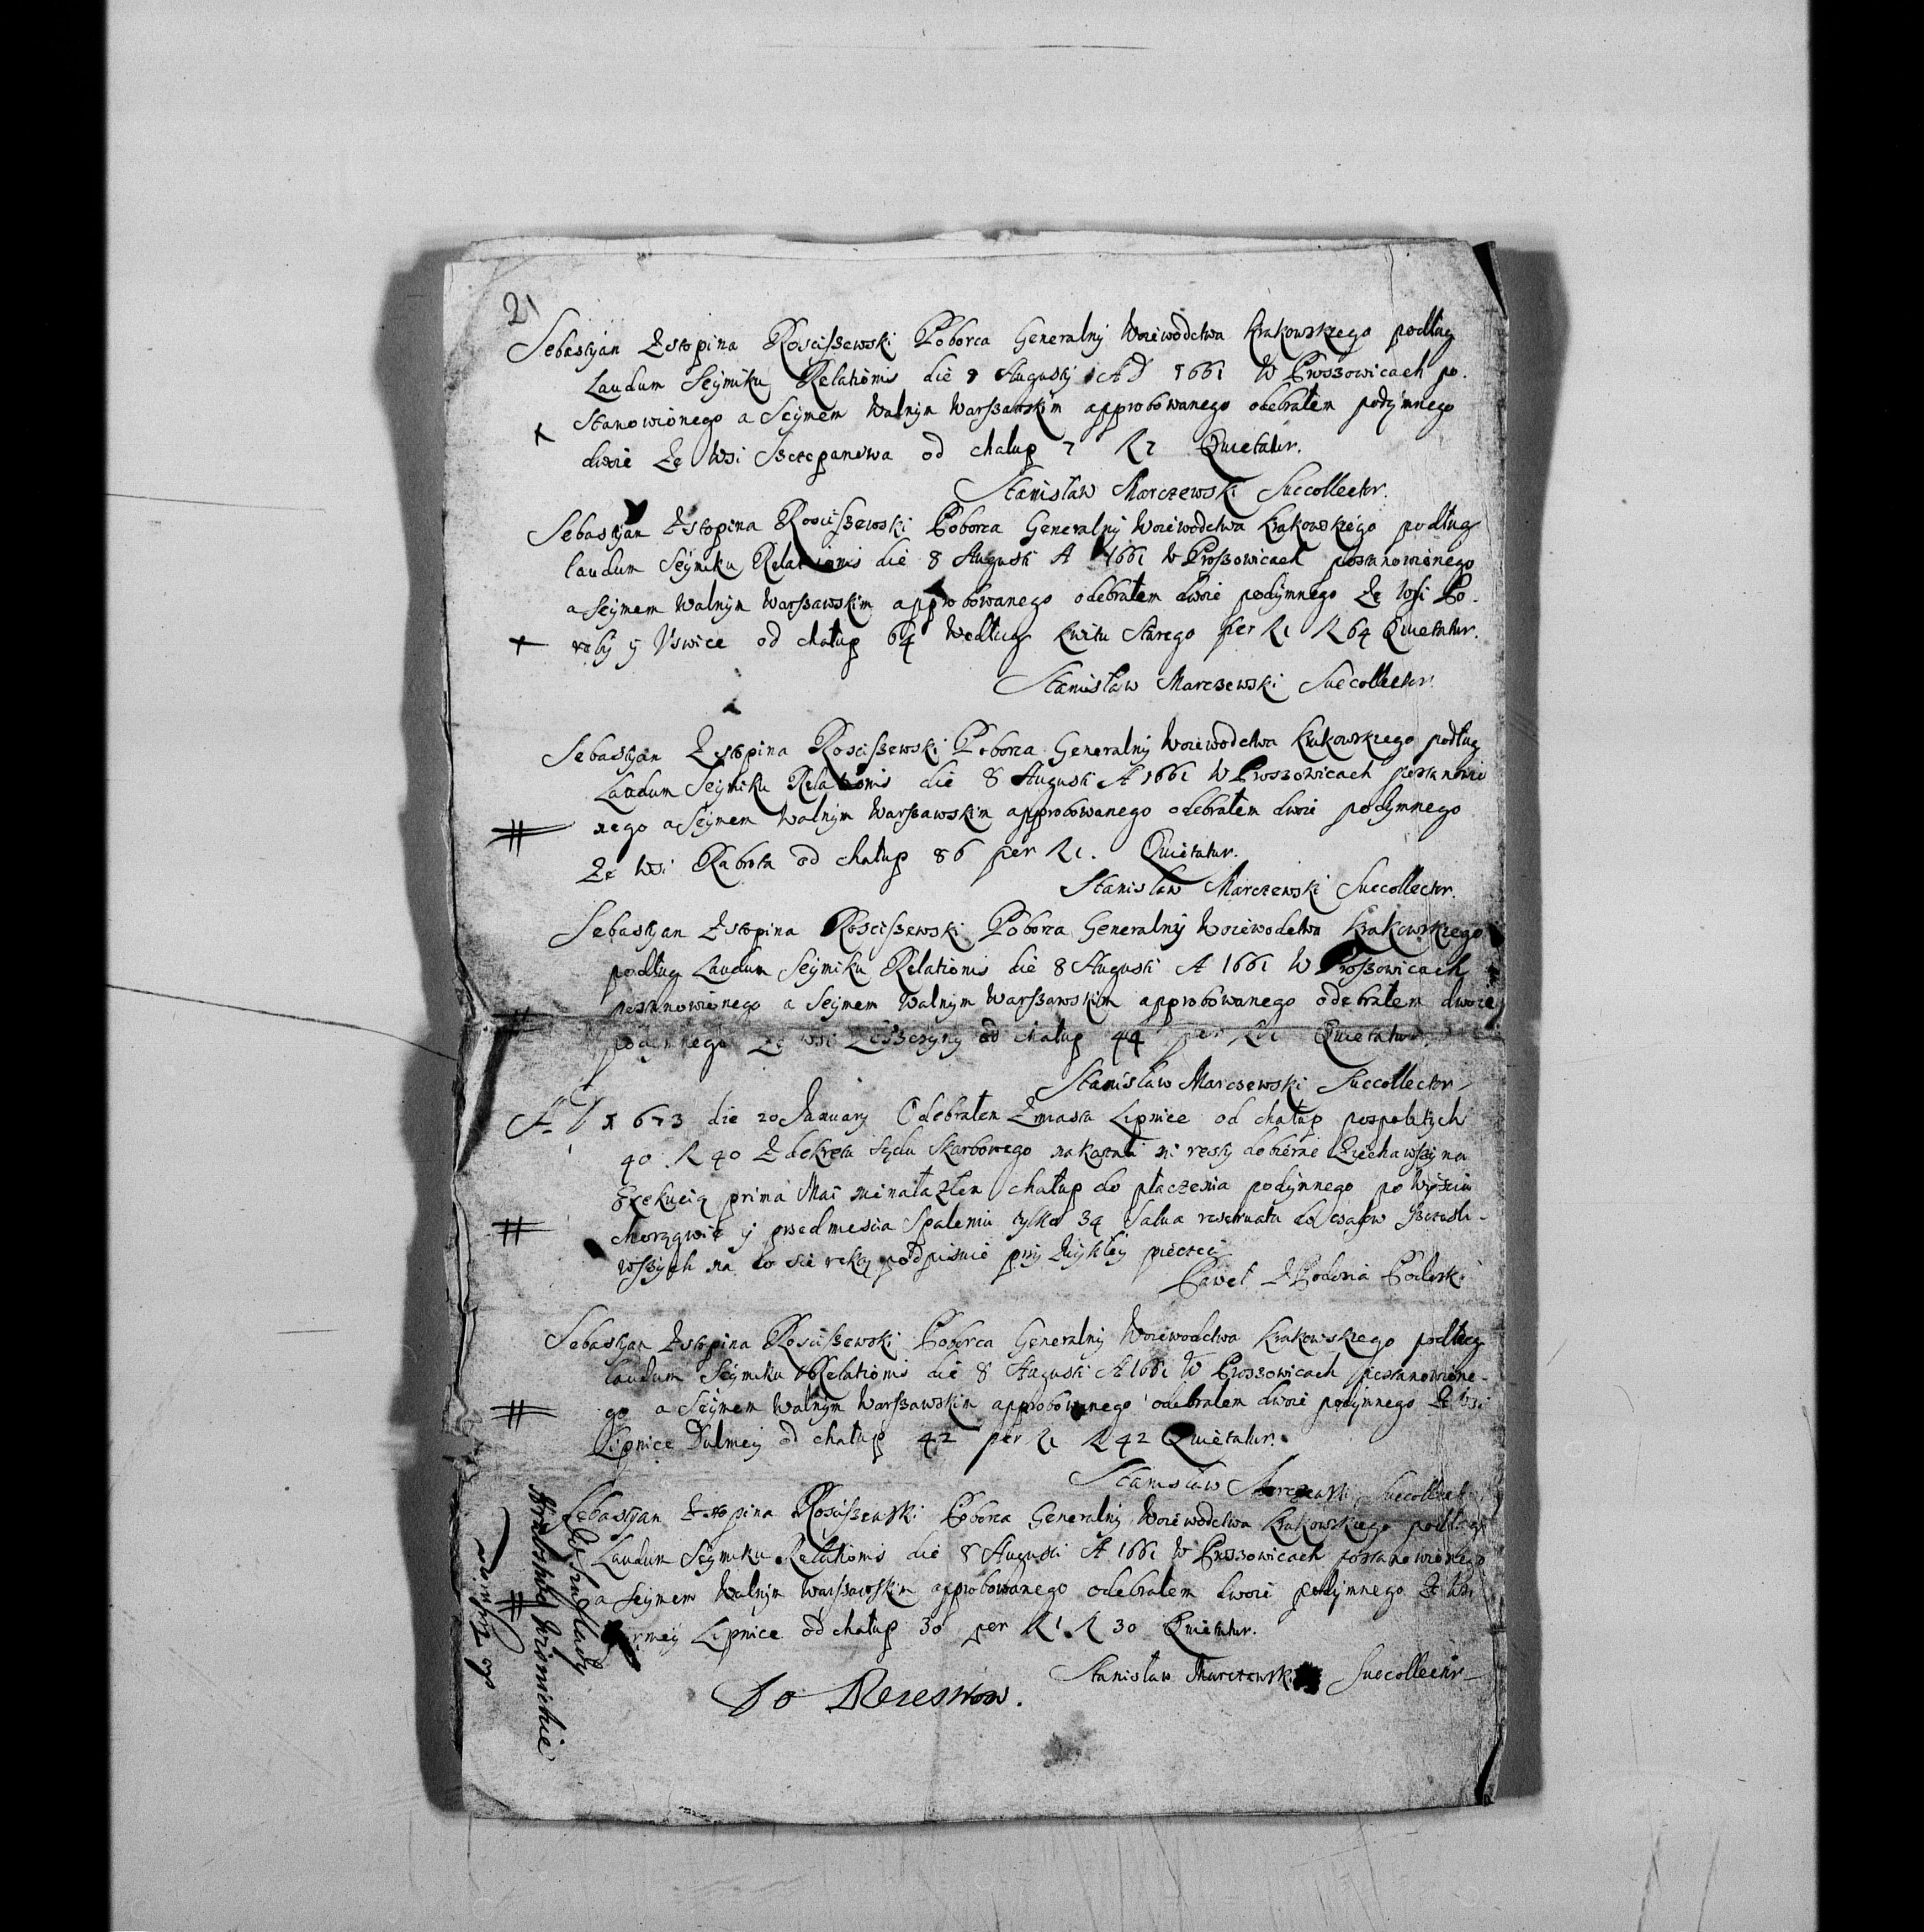 2
Sebastyan Zstopina Rosciszewski Poborca Generalny Woiewodctwa Krakowskiego podług
Laudum Seymiku Relationis die 8 Augusti A D 1661 W Proszowicach po-
stanowionego a Seymem Walnym Warszawskim approbowanego odebrałem podymnego
dwoie Ze Wsi Sczepanowa od chałup 7 R 7 Quietatur.
Stanisław Marczewski Succollector.
Sebastyan Zstopina Rosciszewski Poborca Generalny Woiewodctwa Krakowskiego podług
laudum Seymiku Relationis die 8 Augusti A 1661 W Proszowicach postanowionego
a Seymem Walnym Warszawskim approbowanego odebrałem dwoie podymnego Ze Wsi Po-
ręby y Vswice od chałup 64 Według kwitu starego per R 1 R 64 Quietatur.
Stanisław Marczewski Succollector.
Sebastyan Zstopina Rosciszewski Poborca Generalny Woiewodctwa Krakowskiego podług
Laudum Seymiku Relationis die 8 Augusti A 1661 W Proszowicach postanowio
nego a Seymem Walnym Warszawskim approbowanego odebrałem dwoie podymnego
Ze Wsi Rabrota od chałup 86 per R 1. Quietatur.
Stanisław Marczewski Succollector.
Sebastyan Zstopina Rosciszewski Poborca Generalny Woiewodctwa Krakowskiego
podług Laudum Seymiku Relationis die 8 Augusti A 1661 W Proszowicach
postanowionego a Seymem Walnym Warszawskim approbowanego odebrałem dwoie
podymnego Ze wsi od chałup 44 per R 1 Quietatur.
Stanisław Marczewski Succollector
A D 1673 die 20 January Odebrałem Zmiasta Lipnice od chałup pospolitych
40 R 40 Z dekretu Sądu Skarbowego resty Ziechawszy na
Exekucią prima Mai nienalazłem chałup do płaczenia podymnego po
chorągwie y przedmiescia Spaleniu tylko 34 Salua reseruata
wszych na co sie ręką podpisuie przy Zwykłey pieczęci
Paweł
Sebastyan Zstopina Rosciszewski Poborca Generalny Woiewodctwa Krakowskiego podług
laudum Seymiku Relationis die 8 Augusti A 1661 W Proszowicach postanowione-
go a Seymem Walnym Warszawskim approbowanego odebrałem dwoie podymnego Ze Wsi
Lipnice Dulney od chałup 42 per R 1 R 42 Quietatur.
Stanisław Marczewski Succollect
Sebastyan Zstopina Rosciszewski Poborca Generalny Woiewodctwa Krakowskiego podług
Laudum Seymiku Relationis die 8 Augusti A 1661 W Proszowicach postanowionego
a Seymem Walnym Warszawskim approbowanego odebrałem dwoie podymnego Ze Wsi
Lipnice od chałup 30 per R 1. R 30 Quietatur.
Stanisław Marczewski Succollector
Hrabstwa Wisnickie